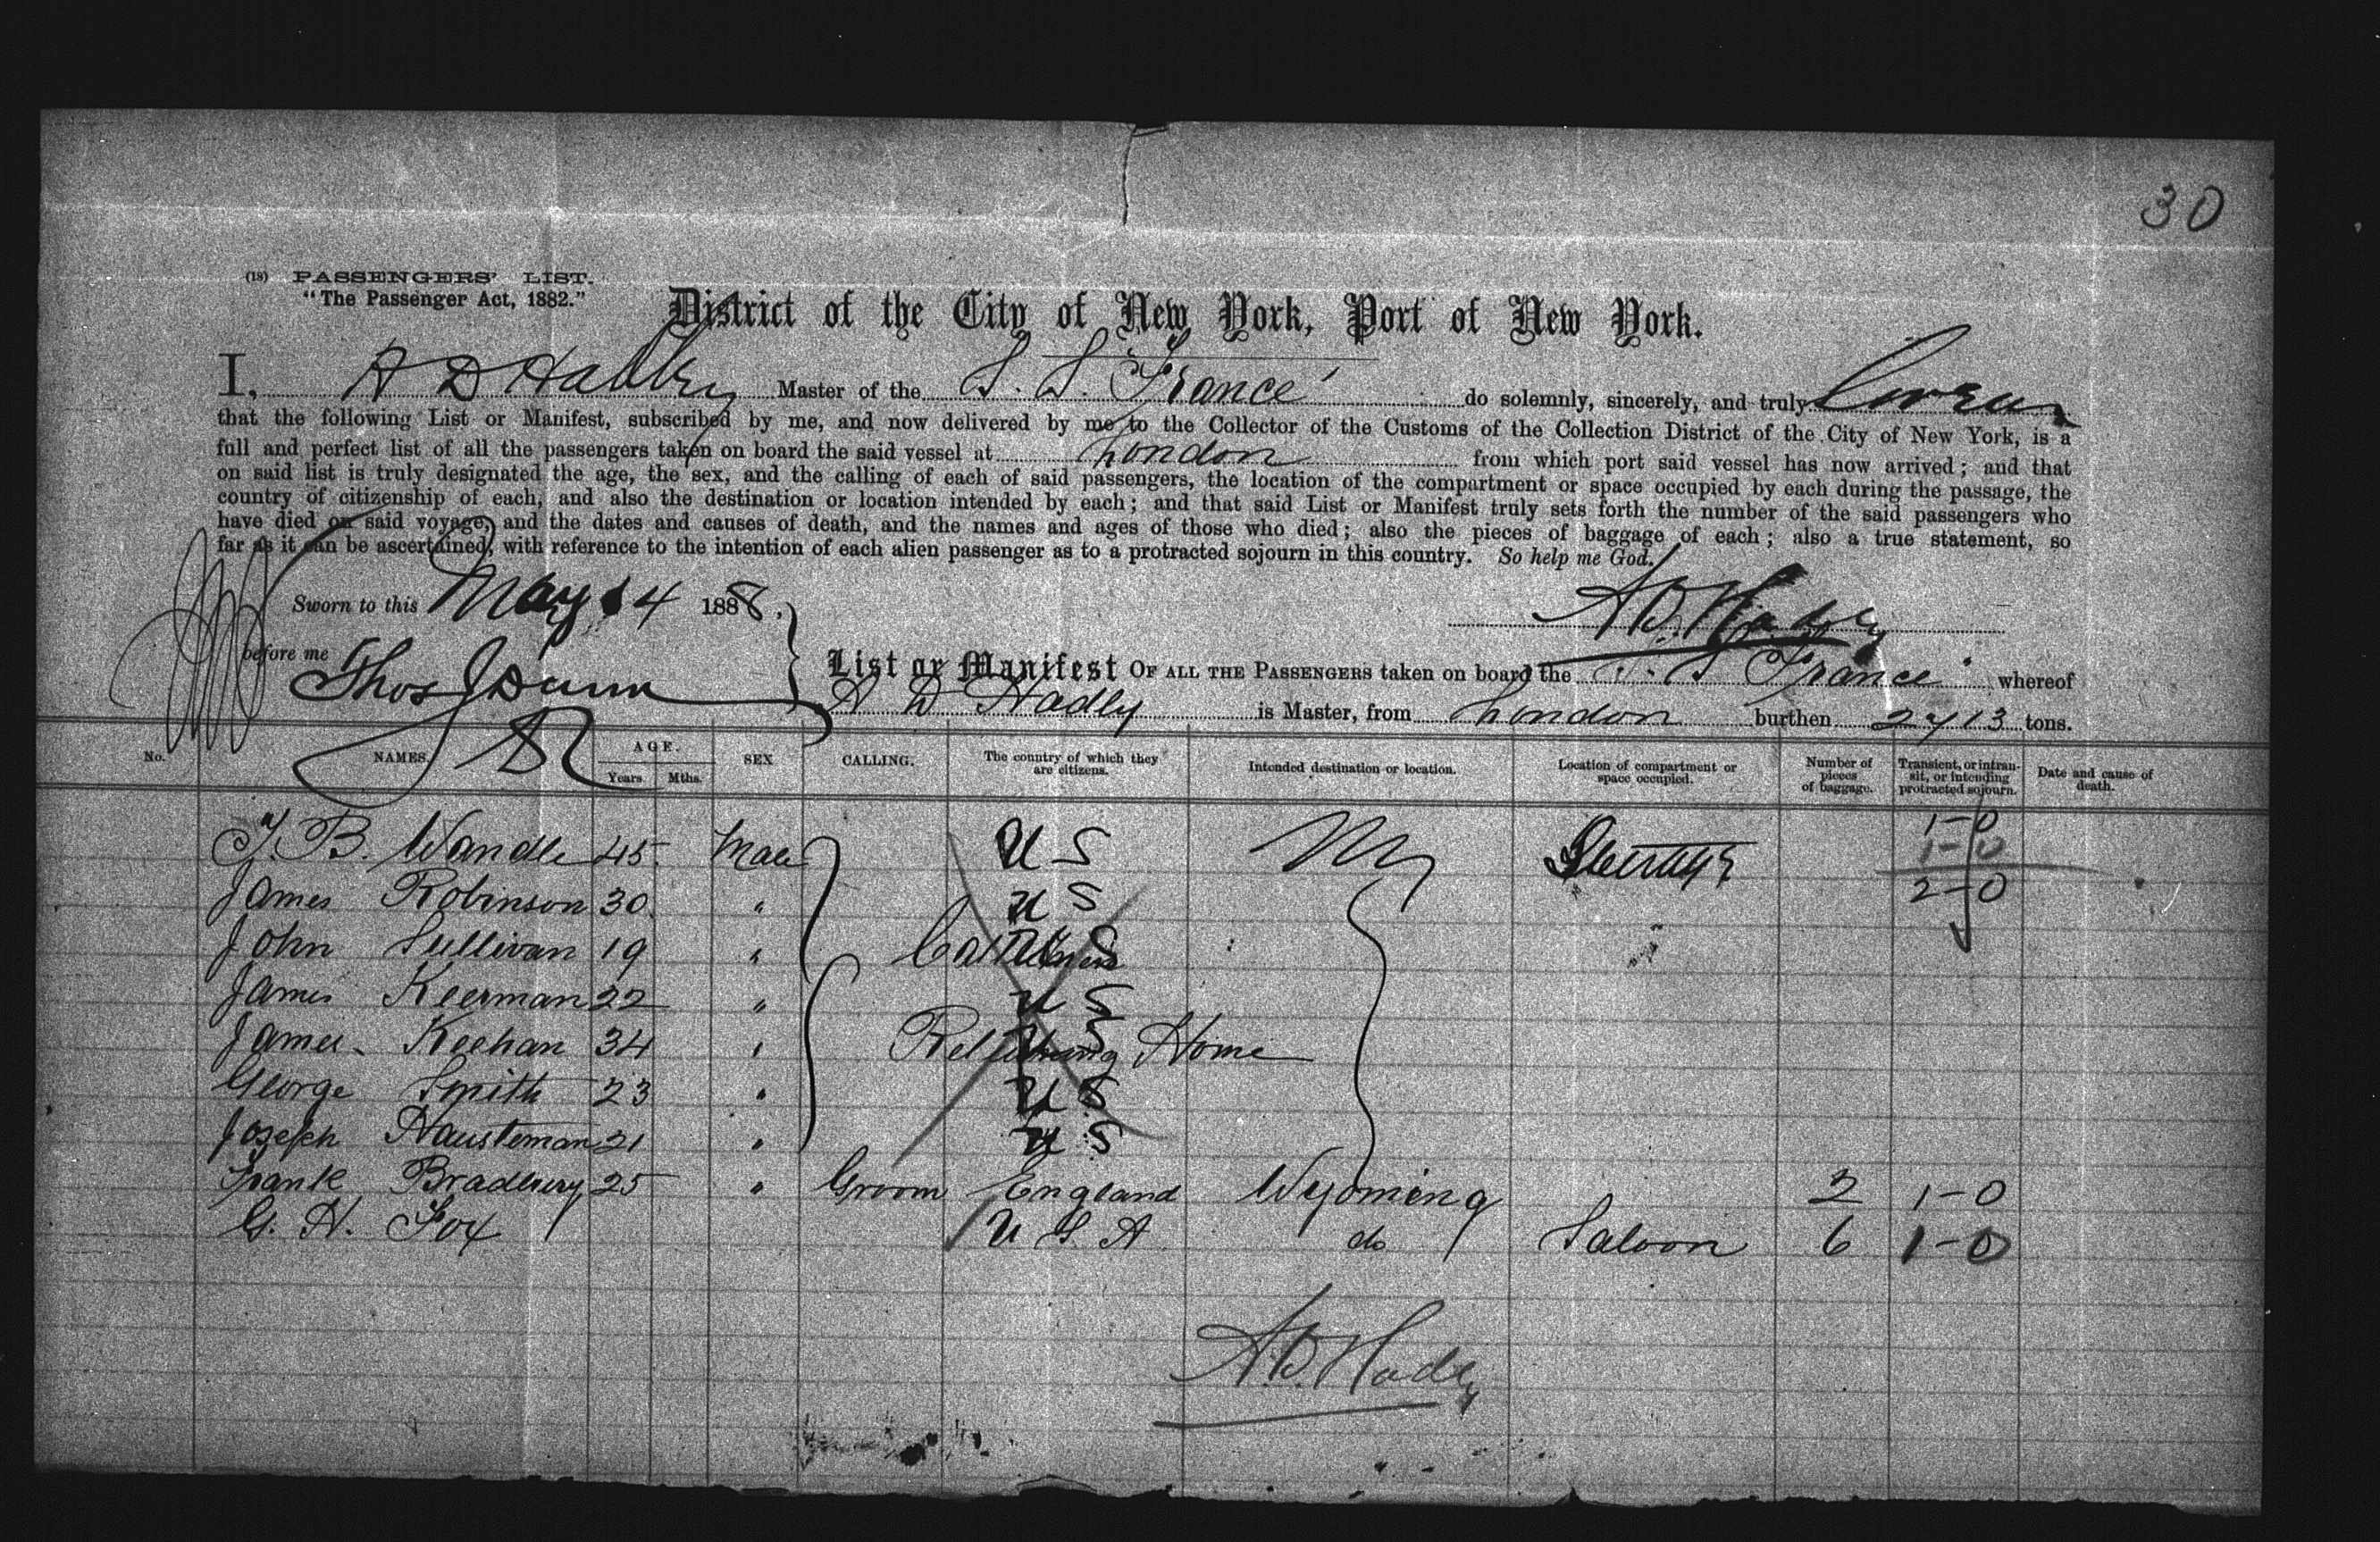 30
(18) PASSENGERS' LIST.
"The Passenger Act, 1882."
District of the City of New York, Port of New York.
I, A D Hadley Master of the S. S. France do solemnly, sincerely, and truly swear
that the following List or Manifest, subscribed by me, and now delivered by me to the Collector of the Customs of the Collection District of the City of New York, is a
full and perfect list of all the passengers taken on board the said vessel at London from which port said vessel has now arrived; and that
on said list is truly designated the age, the sex, and the calling of each of said passengers, the location of the compartment or space occupied by each during the passage, the
country of citizenship of each, and also the destination or location intended by each; and that said List or Manifest truly sets forth the number of the said passengers who
have died on said voyage, and the dates and causes of death, and the names and ages of those who died; also the pieces of baggage of each; also a true statement, so
far as it can be ascertained, with reference to the intention of each alien passenger as to a protracted sojourn in this country. So help me God.
Sworn to this May 14 1888,
A.D. Hadley
before me Thos J Dunn
List or Manifest OF ALL THE PASSENGERS taken on board the S. S France whereof
A D Hadley is Master, from London burthen 2713 tons.
No. NAMES. AGE. Years. Mths. SEX CALLING. The country of which they are citizens. Intended destination or location. Location of compartment or space occupied. Number of pieces of baggage. Transient, or in transit, or intending protracted sojourn. Date and cause of death.
T. B. Wandle 45 Male U S NY 1-0
1-0
James Robinson 30 " U S 2-0
John Sullivan 19 " Cattlemen U S "
James Keerman 22 " U S
James Keehan 34 " Returning Home U S
George Smith 23 " U S
Joseph Hausteman 21 " U S
Frank Bradbury 25 " Groom England Wyoming 2 1-0
G. H. Fox U S A do Saloon 6 1-0
A.D. Hadley